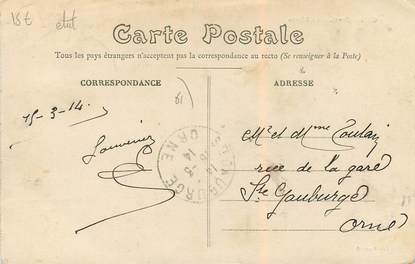 18€ état
Carte Postale
Tous les pays étrangers n'acceptent pas la correspondance au recto (Se renseigner à la Poste)
CORRESPONDANCE
ADRESSE
15-3-14.
Souvenir
61
STE GAUBURGE
ORNE
14
Mr et Mme Coulay
rue de la gare
Ste Gauburge
Orne